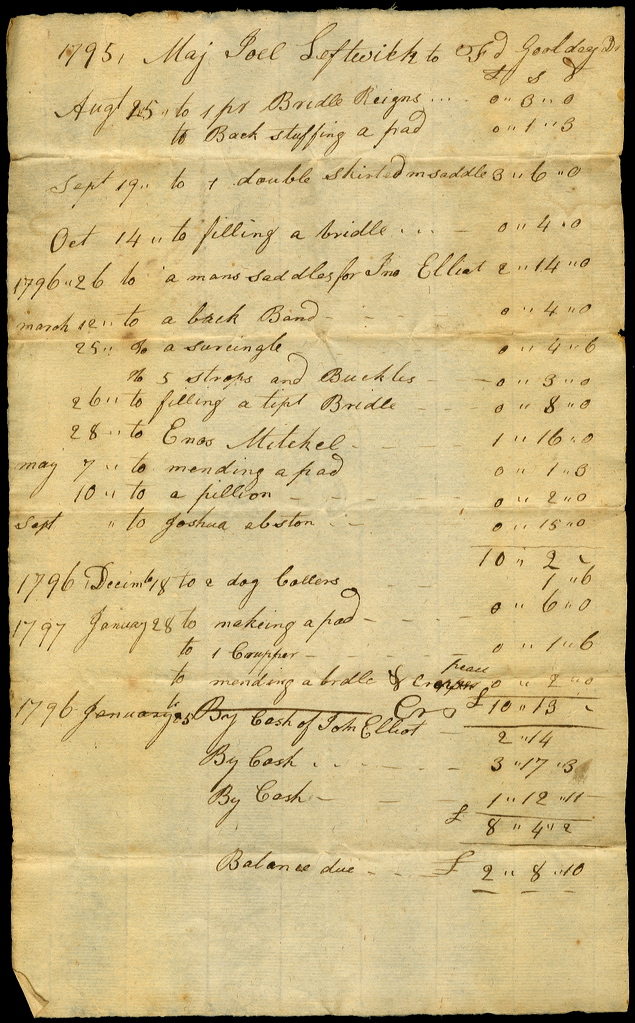 1795, Maj Joel Leftwich to Fd Goolday Dr
£ s d
Augt 25 " to 1 pr Bridle Reigns ... 0 " 3 " 0
to Back stuffing a pad 0 " 1 " 3
Sept 19 " to 1 double skirted m saddle 3 " 6 " 0
Oct 14 " to filling a bridle ... 0 " 4 " 0
1796 " 26 to a mans saddles for Jno Elliot 2 " 14 " 0
march 12 " to a back Band 0 " 4 " 0
25 " to a surcingle 0 " 4 " 6
to 5 strops and Buckles 0 " 3 " 0
26 " to filling a tipt Bridle 0 " 8 " 0
28 " to Enos Mitchel 1 " 16 " 0
may 7 " to mending a pad 0 " 1 " 3
10 " to a pillion 0 " 2 " 0
Sept " to Joshua abston 0 " 15 " 0
10 " 2 "
1796 Decimb 18 to 2 dog Collers 1 " 6
1797 January 28 to makeing a pad 0 " 6 " 0
to 1 Crupper 0 " 1 " 6
to mending a brdle & peace 0 " 2 " 0
Cr £ 10 " 13 "
1796 January 25 By Cash of John Elliot 2 " 14
By Cash 3 " 17 " 3
By Cash 1 " 12 " 11
£ 8 " 4 " 2
Balance due £ 2 " 8 " 10